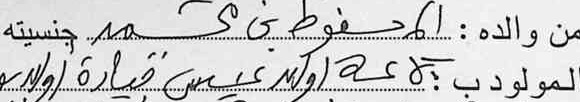 من والده : المحفوظ بن محمد جنسيته
المولود ب : اولاد عيسى قيادة اولاد